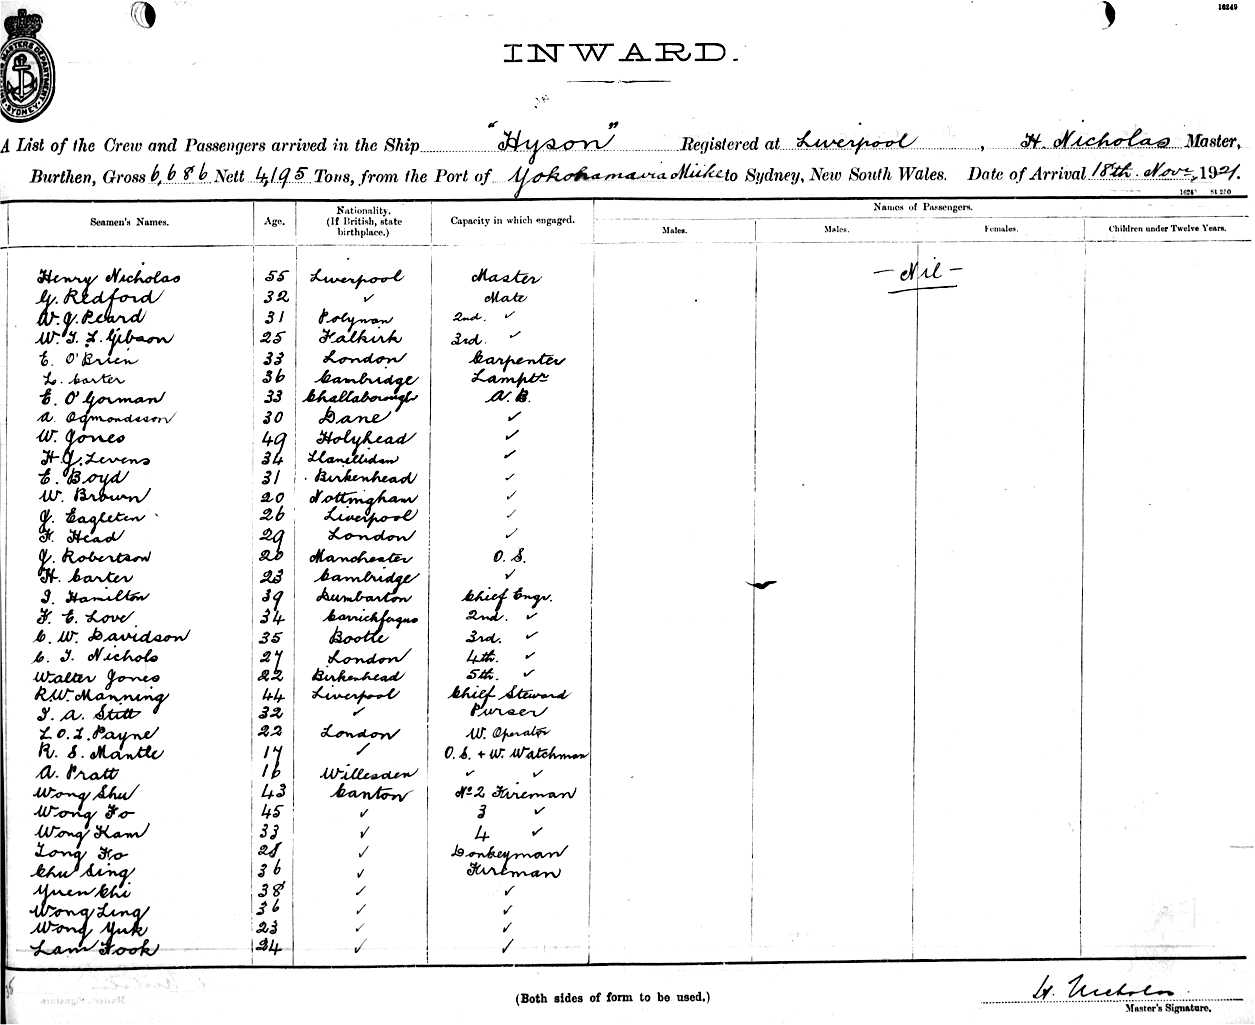 16249
INWARD.
A List of the Crew and Passengers arrived in the Ship "Hyson" Registered at Liverpool, H. Nicholas Master,
Burthen, Gross 6,686 Nett 4,195 Tons, from the Port of Yokohama via Miike to Sydney, New South Wales. Date of Arrival 18th Novr, 1921.
Names of Passengers.
Seamen's Names. Age. Nationality. (If British, state birthplace.) Capacity in which engaged. Males. Males. Females. Children under Twelve Years.
— Nil —
Henry Nicholas 55 Liverpool Master
G. Redford 32 ✓ Mate
W. J. Peard 31 2nd. ✓
W. T. L. Gibson 25 Falkirk 3rd. ✓
E. O'Brien 33 London Carpenter
L. Carter 36 Cambridge Lamptr
E. O'Gorman 33 Challaborough A.B.
A. Ogmondsson 30 Dane ✓
W. Jones 49 Holyhead ✓
H. J. Levens 34 ✓
E. Boyd 31 Birkenhead ✓
W. Brown 20 Nottingham ✓
J. Eagleten 26 Liverpool ✓
F. Head 29 London ✓
J. Robertson 26 Manchester O.S.
H. Carter 23 Cambridge ✓
J. Hamilton 39 Dumbarton Chief Engr.
F. E. Love 34 Carrickfergus 2nd. ✓
C. W. Davidson 35 Bootle 3rd. ✓
C. T. Nichols 27 London 4th. ✓
Walter Jones 22 Birkenhead 5th. ✓
R. W. Manning 44 Liverpool Chief Steward
T. A. Stitt 32 ✓ Purser
L. O. L. Payne 22 London W. Operator
R. S. Mantle 17 ✓ O.S. + W. Watchman
A. Pratt 16 Willesden ✓ ✓
Wong Shu 43 Canton No 2 Fireman
Wong Fo 45 ✓ 3 ✓
Wong Kam 33 ✓ 4 ✓
Tong Ko 28 ✓ Donkeyman
Chu Sing 36 ✓ Fireman
Yuen Chi 38 ✓ ✓
Wong Ling 36 ✓ ✓
Wong Yuk 23 ✓ ✓
Lam Fook 24 ✓ ✓
(Both sides of form to be used.)
H. Nicholas
Master's Signature.